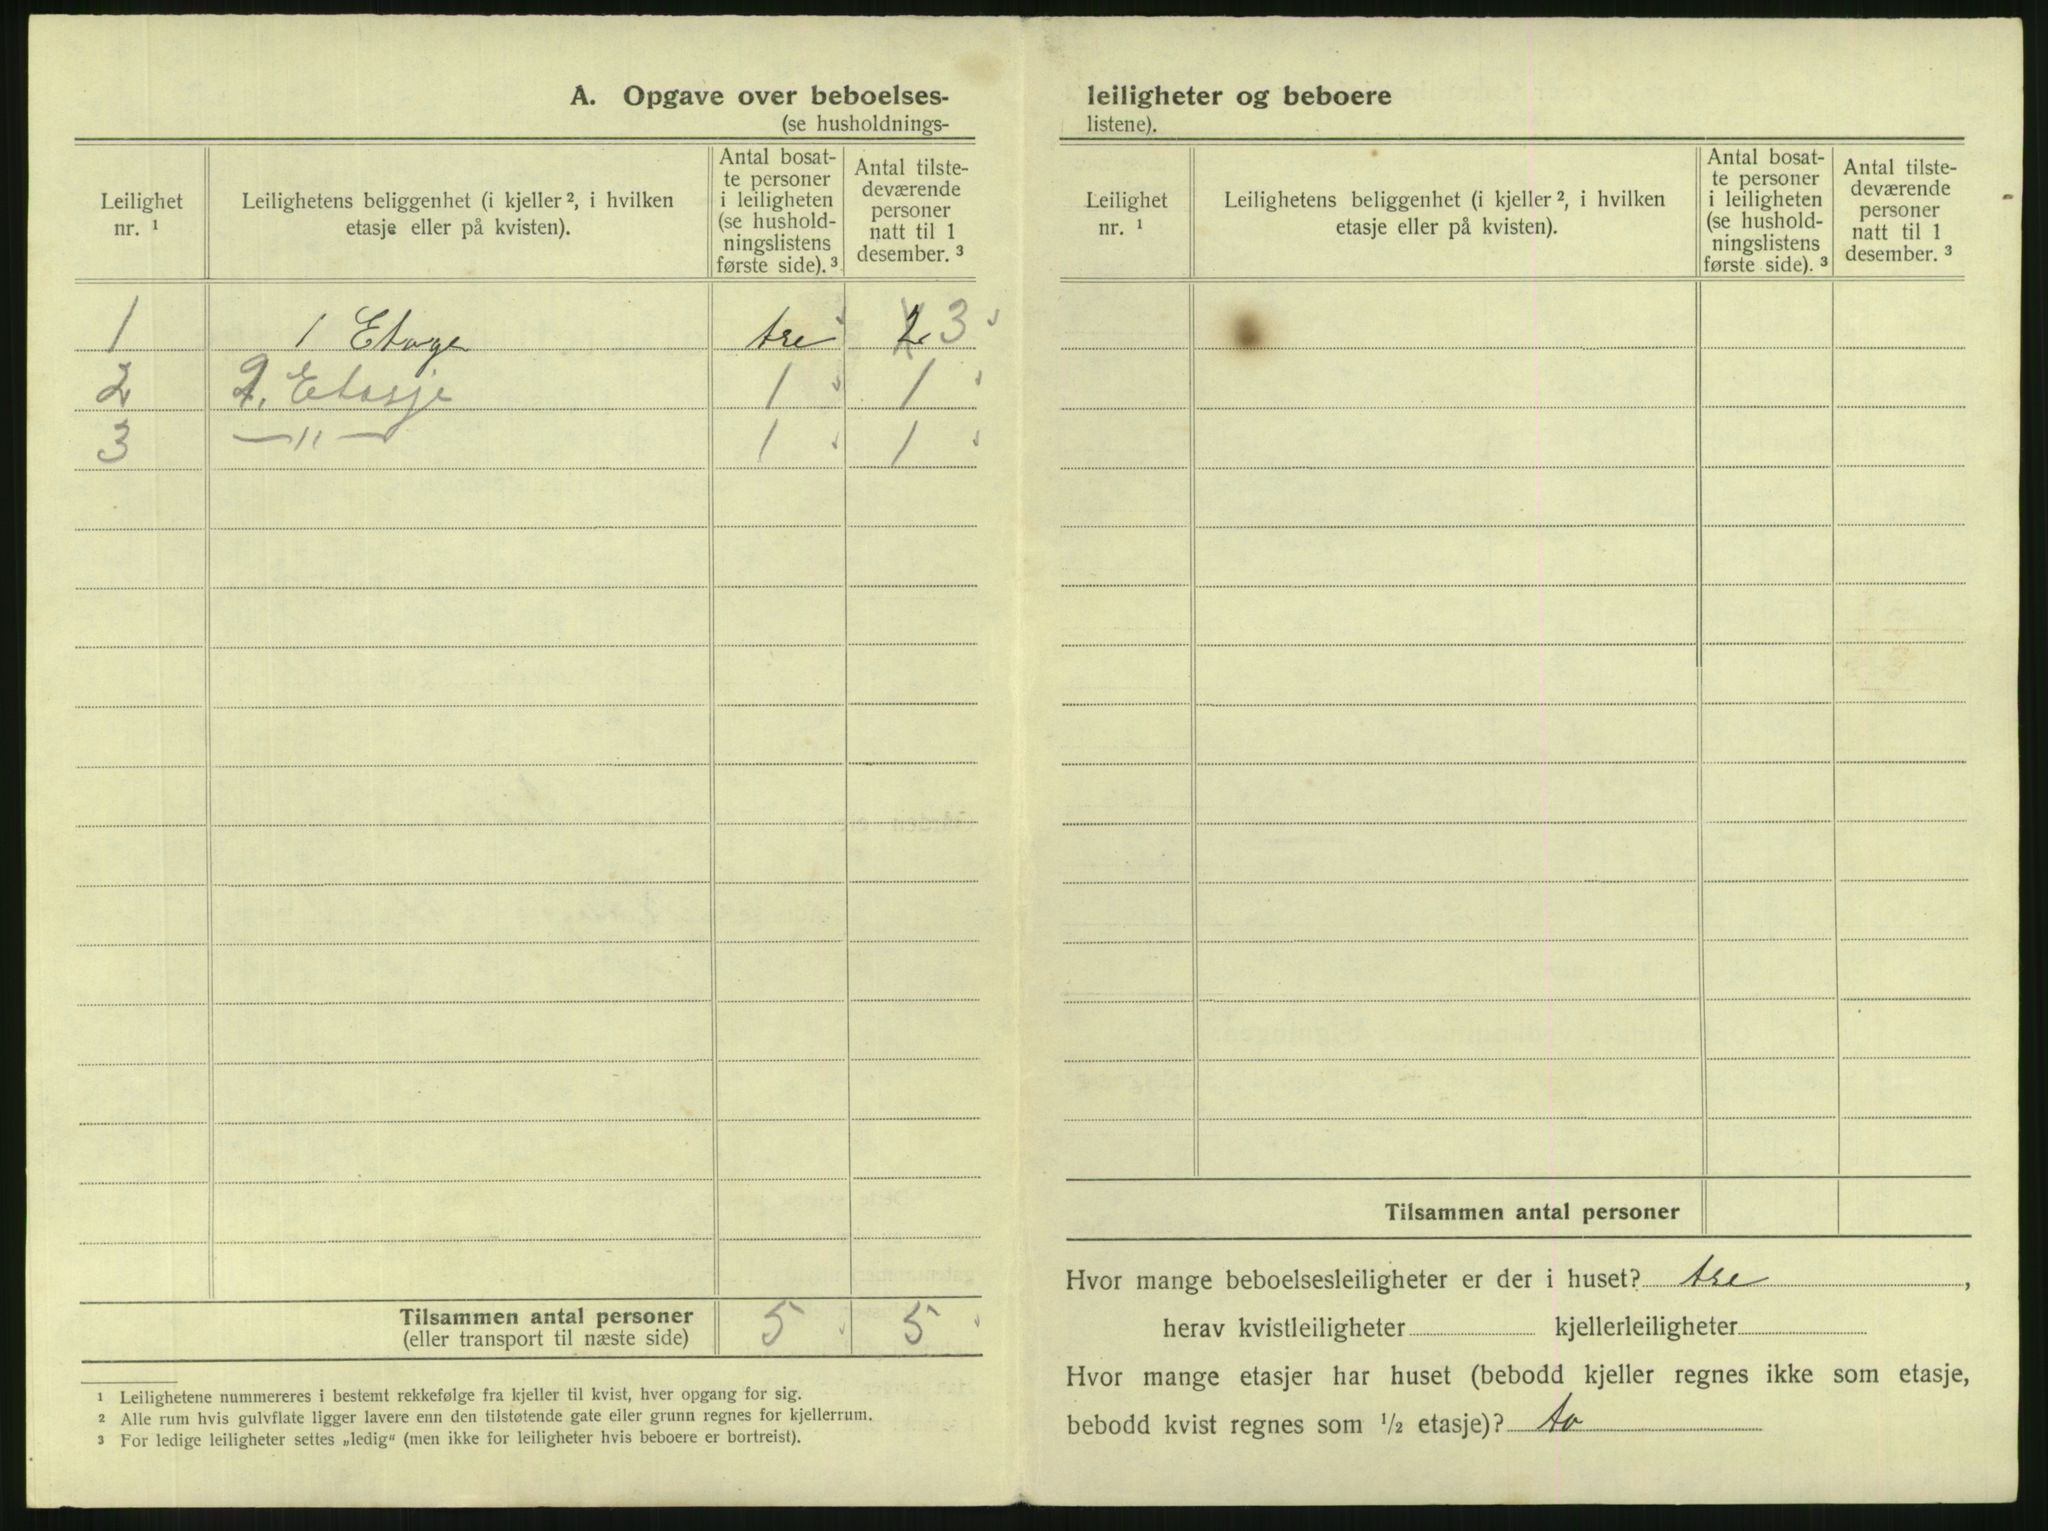 A. Opgave over beboelses-
(se husholdnings-
Leilighet nr. ¹
Leilighetens beliggenhet (i kjeller ², i hvilken etasje eller på kvisten).
Antal bosat-
te personer
i leiligheten
(se hushold-
ningslistens
første side). ³
Antal tilste-
deværende
personer
natt til 1
desember. ³
1 1 Etage tre 2 3
2 2. Etasje 1 1
3 —"— 1 1
Tilsammen antal personer 5 5
(eller transport til næste side)
¹ Leilighetene nummereres i bestemt rekkefølge fra kjeller til kvist, hver opgang for sig.
² Alle rum hvis gulvflate ligger lavere enn den tilstøtende gate eller grunn regnes for kjellerrum.
³ For ledige leiligheter settes „ledig“ (men ikke for leiligheter hvis beboere er bortreist).
leiligheter og beboere
listene).
Leilighet nr. ¹
Leilighetens beliggenhet (i kjeller ², i hvilken etasje eller på kvisten).
Antal bosat-
te personer
i leiligheten
(se hushold-
ningslistens
første side). ³
Antal tilste-
deværende
personer
natt til 1
desember. ³
Tilsammen antal personer
Hvor mange beboelsesleiligheter er der i huset? tre,
herav kvistleiligheter kjellerleiligheter
Hvor mange etasjer har huset (bebodd kjeller regnes ikke som etasje,
bebodd kvist regnes som ½ etasje)? to